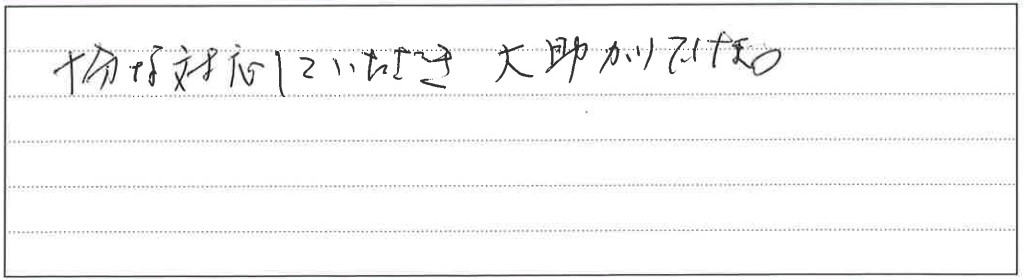 十分な対応していただき 大助かりです。